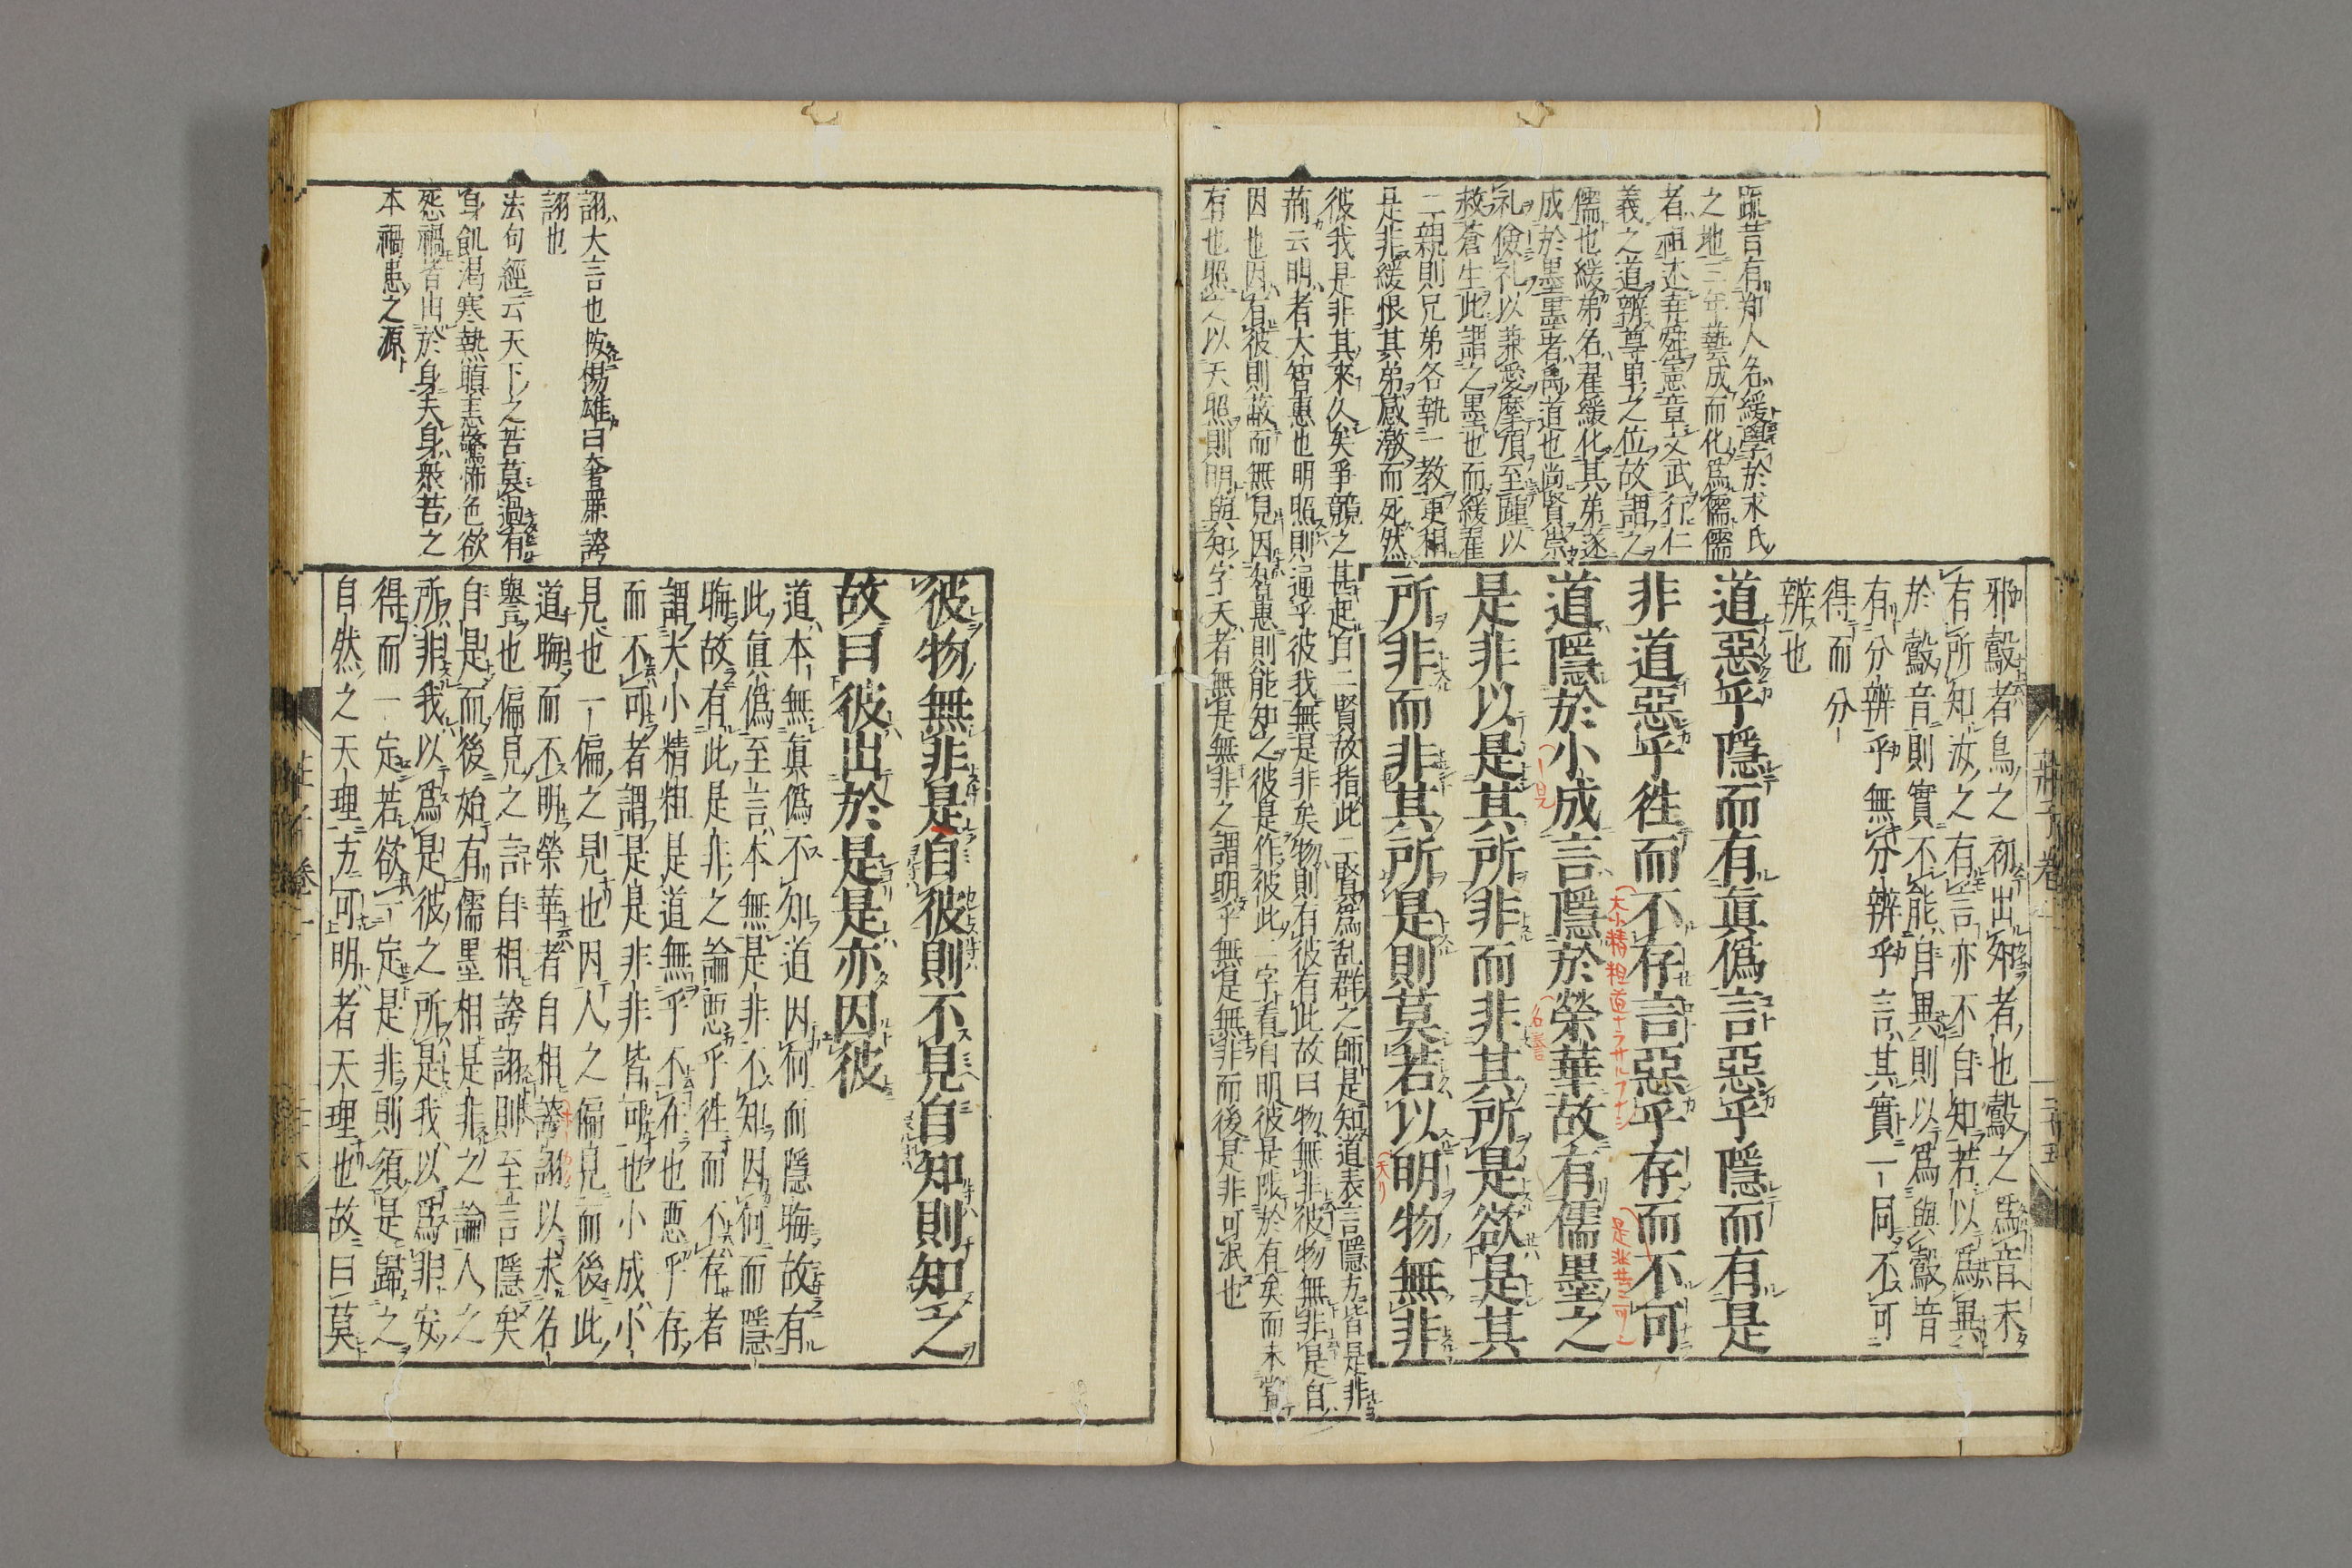 疏昔有鄭人名緩學於求氏
之地三年藝成而化爲儒儒
者祖述堯舜憲章文武行仁
義之道辨尊卑之位故謂之
儒也緩弟名翟緩化其弟遂
成於墨墨者禹道也尚賢崇
礼儉礼以兼愛摩頂至踵以
救蒼生此謂之墨也而緩翟
二親則兄弟各執一教更相
是非緩恨其弟感激而死然
彼我是非其來久矣爭競之甚起自二賢故指此二賢爲乱群之師是知道表言隱方皆是非
荊云明者大智惠也明照則通乎彼我無是非矣物則有彼有此故曰物無非彼物無非是自
因也因有彼則故而無見因智惠則能知之彼是作彼此二字看自明彼是陟於有矣而未嘗
有也照之以天照則明與知字天者無是無非之謂明乎無是無非而後是非可泯也
邪鷇者鳥之初出卵者也鷇之爲音未
有所知汝之有言亦不自知若以爲異
於鷇音則實不能自異則以爲與鷇音
有分辨乎無分辨乎言其實一同不可
得而分
辨也
道惡乎隱而有眞僞言惡乎隱而有是
非道惡乎往而不存言惡乎存而不可
道隱於小成言隱於榮華故有儒墨之
是非以是其所非而非其所是欲是其
所非而非其所是則莫若以明物無非
大小精粗道ナラサルフナシ
莊子卷一
二十五
詡大言也
詡也
法句經云天下之苦莫過有
身飢渇寒熱瞋恚驚怖色欲
怨禍皆由於身夫身衆苦之
本禍患之源
彼物無非是自彼則不見自知則知之
故曰彼出於是是亦因彼
道本無眞僞不知道因何而隱晦故有
此眞僞至言本無是非不知因何而隱
晦故有此是非之論惡乎往而不存者
謂大小精粗是道無乎不在也惡乎存
而不可者謂是是非非皆可也小成小
見也一偏之見也因人之偏見而後此
道晦而不明榮華者自相誇詡以求名
譽也偏見之言自相誇詡則至言隱矣
自是而後始有儒墨相是非之論人之
所非我以爲是彼之所是我以爲非安
得而一定若欲一定是非則須是歸之
自然之天理方可明者天理也故曰莫